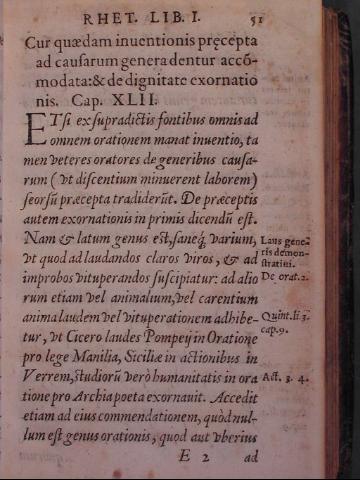 RHET. LIB. I. 51
Cur quædam inuentionis pręcepta
ad causarum genera dentur accõ-
modata: & de dignitate exornatio
nis. Cap. XLII.
ETsi ex supradictis fontibus omnis ad
omnem orationem manat inuentio, ta
men veteres oratores de generibus causa-
rum (vt discentium minuerent laborem)
seorsũ præcepta tradiderũt. De præceptis
autem exornationis in primis dicendũ est.
Nam & latum genus est, saneq́, varium,
vt quod ad laudandos claros viros, & ad
improbos vituperandos suscipiatur: ad alio
rum etiam vel animalum, vel carentium
anima laudem vel vituperationem adhibe-
tur, vt Cicero laudes Pompeij in Oratione
pro lege Manilia, Siciliæ in actionibus in
Verrem, studiorũ verò humanitatis in ora
tione pro Archia poeta exornauit. Accedit
etiam ad eius commendationem, quòd nul-
lum est genus orationis, quod aut vberius
E 2 ad
Laus gene
ris demon-
stratiui.
De orat. 2.
Quint. li. 3.
cap. 9.
Act. 3. 4.